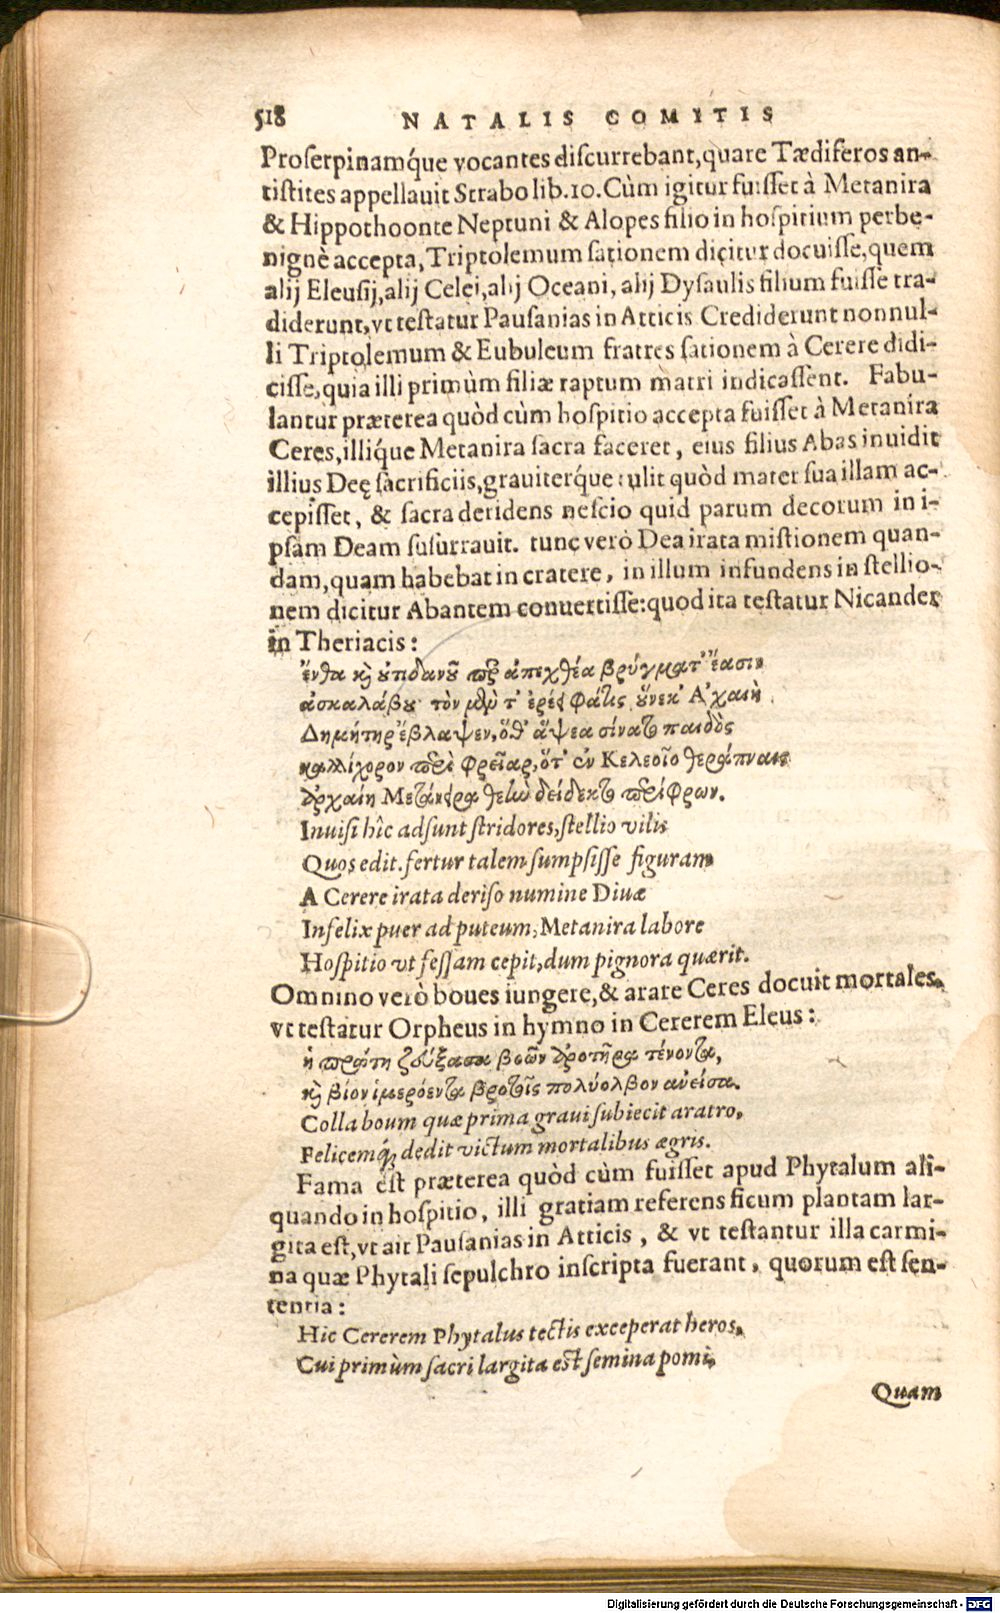 518 NATALIS COMITIS
Proserpinamq́ue vocantes discurrebant, quare Tædiferos an-
tistites appellauit Strabo lib.10. Cùm igitur fuisset à Metanira
& Hippothoonte Neptuni & Alopes filio in hospitium perbe-
nignè accepta, Triptolemum sationem dicitur docuisse, quem
alij Eleusij, alij Celei, alij Oceani, alij Dysaulis filium fuisse tra-
diderunt, vt testatur Pausanias in Atticis Crediderunt nonnul-
li Triptolemum & Eubuleum fratres sationem à Cerere didi-
cisse, quia illi primùm filiæ raptum matri indicassent. Fabu-
lantur præterea quòd cùm hospitio accepta fuisset à Metanira
Ceres, illiq́ue Metanira sacra faceret, eius filius Abas inuidit
illius Deę sacrificiis, grauiterq́ue tulit quòd mater sua illam ac-
cepisset, & sacra deridens nescio quid parum decorum in i-
psam Deam susurrauit. tunc verò Dea irata mistionem quan-
dam, quam habebat in cratere, in illum infundens in stellio-
nem dicitur Abantem conuertisse: quod ita testatur Nicander
in Theriacis:
ἔνθα καὶ οὐτιδανοῦ περ ἀπεχθέα βρύγματ᾽ ἔασιν
ἀσκαλάβου· τὸν μὲν τ᾽ ἐρέει φάτις οὕνεκ᾽ Ἀχαιὴ
Δημήτηρ ἔβλαψεν, ὅθ᾽ ἅψεα σίνατο παιδὸς
καλλίχορον παρὰ φρεῖαρ, ὅτ᾽ ἐν Κελεοῖο θεράπναις
ἀρχαίη Μετάνειρα θεὼ δείδεκτο περίφρων.
Inuisi hîc adsunt stridores, stellio vilis
Quos edit. fertur talem sumpsisse figuram
A Cerere irata deriso numine Diuæ
Infelix puer ad puteum, Metanira labore
Hospitio vt fessam cepit, dum pignora quærit.
Omnino verò boues iungere, & arare Ceres docuit mortales,
vt testatur Orpheus in hymno in Cererem Eleus:
ἡ πρώτη ζεύξασα βοῶν ἀροτῆρα τένοντα,
καὶ βίον ἱμερόεντα βροτοῖς πολύολβον ἀνεῖσα.
Colla boum quæ prima graui subiecit aratro,
Felicemq́; dedit victum mortalibus ægris.
Fama est præterea quòd cùm fuisset apud Phytalum ali-
quando in hospitio, illi gratiam referens ficum plantam lar-
gita est, vt ait Pausanias in Atticis, & vt testantur illa carmi-
na quæ Phytali sepulchro inscripta fuerant, quorum est sen-
tentia:
Hic Cererem Phytalus tectis exceperat heros,
Cui primùm sacri largita est semina pomi,
Quam
Digitalisierung gefördert durch die Deutsche Forschungsgemeinschaft - DFG